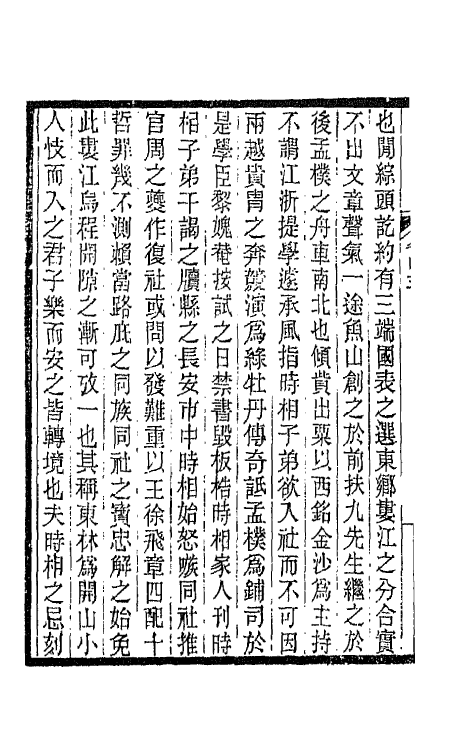 也閒綜頭訖約有三端國表之選東鄉婁江之分合實
不出文章聲氣一途魚山創之於前扶九先生繼之於
後孟樸之舟車南北也傾貲出粟以西銘金沙爲主持
不謂江浙提學遂承風指時相子弟欲入社而不可因
兩越貴冑之奔競演爲綠牡丹傳奇詆孟樸爲鋪司於
是學臣黎媿菴按試之日禁書毀板梏時相家人刊時
相子弟干謁之牘縣之長安市中時相始怒嗾同社推
官周之夔作復社或問以發難重以王徐飛章四配十
哲罪幾不測賴當路庇之同族同社之賓忠解之始免
此婁江烏程開隙之漸可攷一也其稱東林爲開山小
人忮而入之君子樂而安之皆轉境也夫時相之忌刻